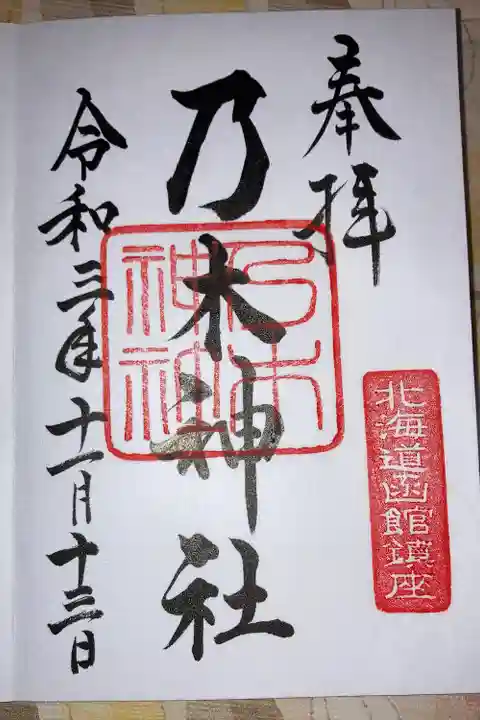 奉拝
北海道函館鎮座
乃木神社
乃木神社
令和三年十一月十三日